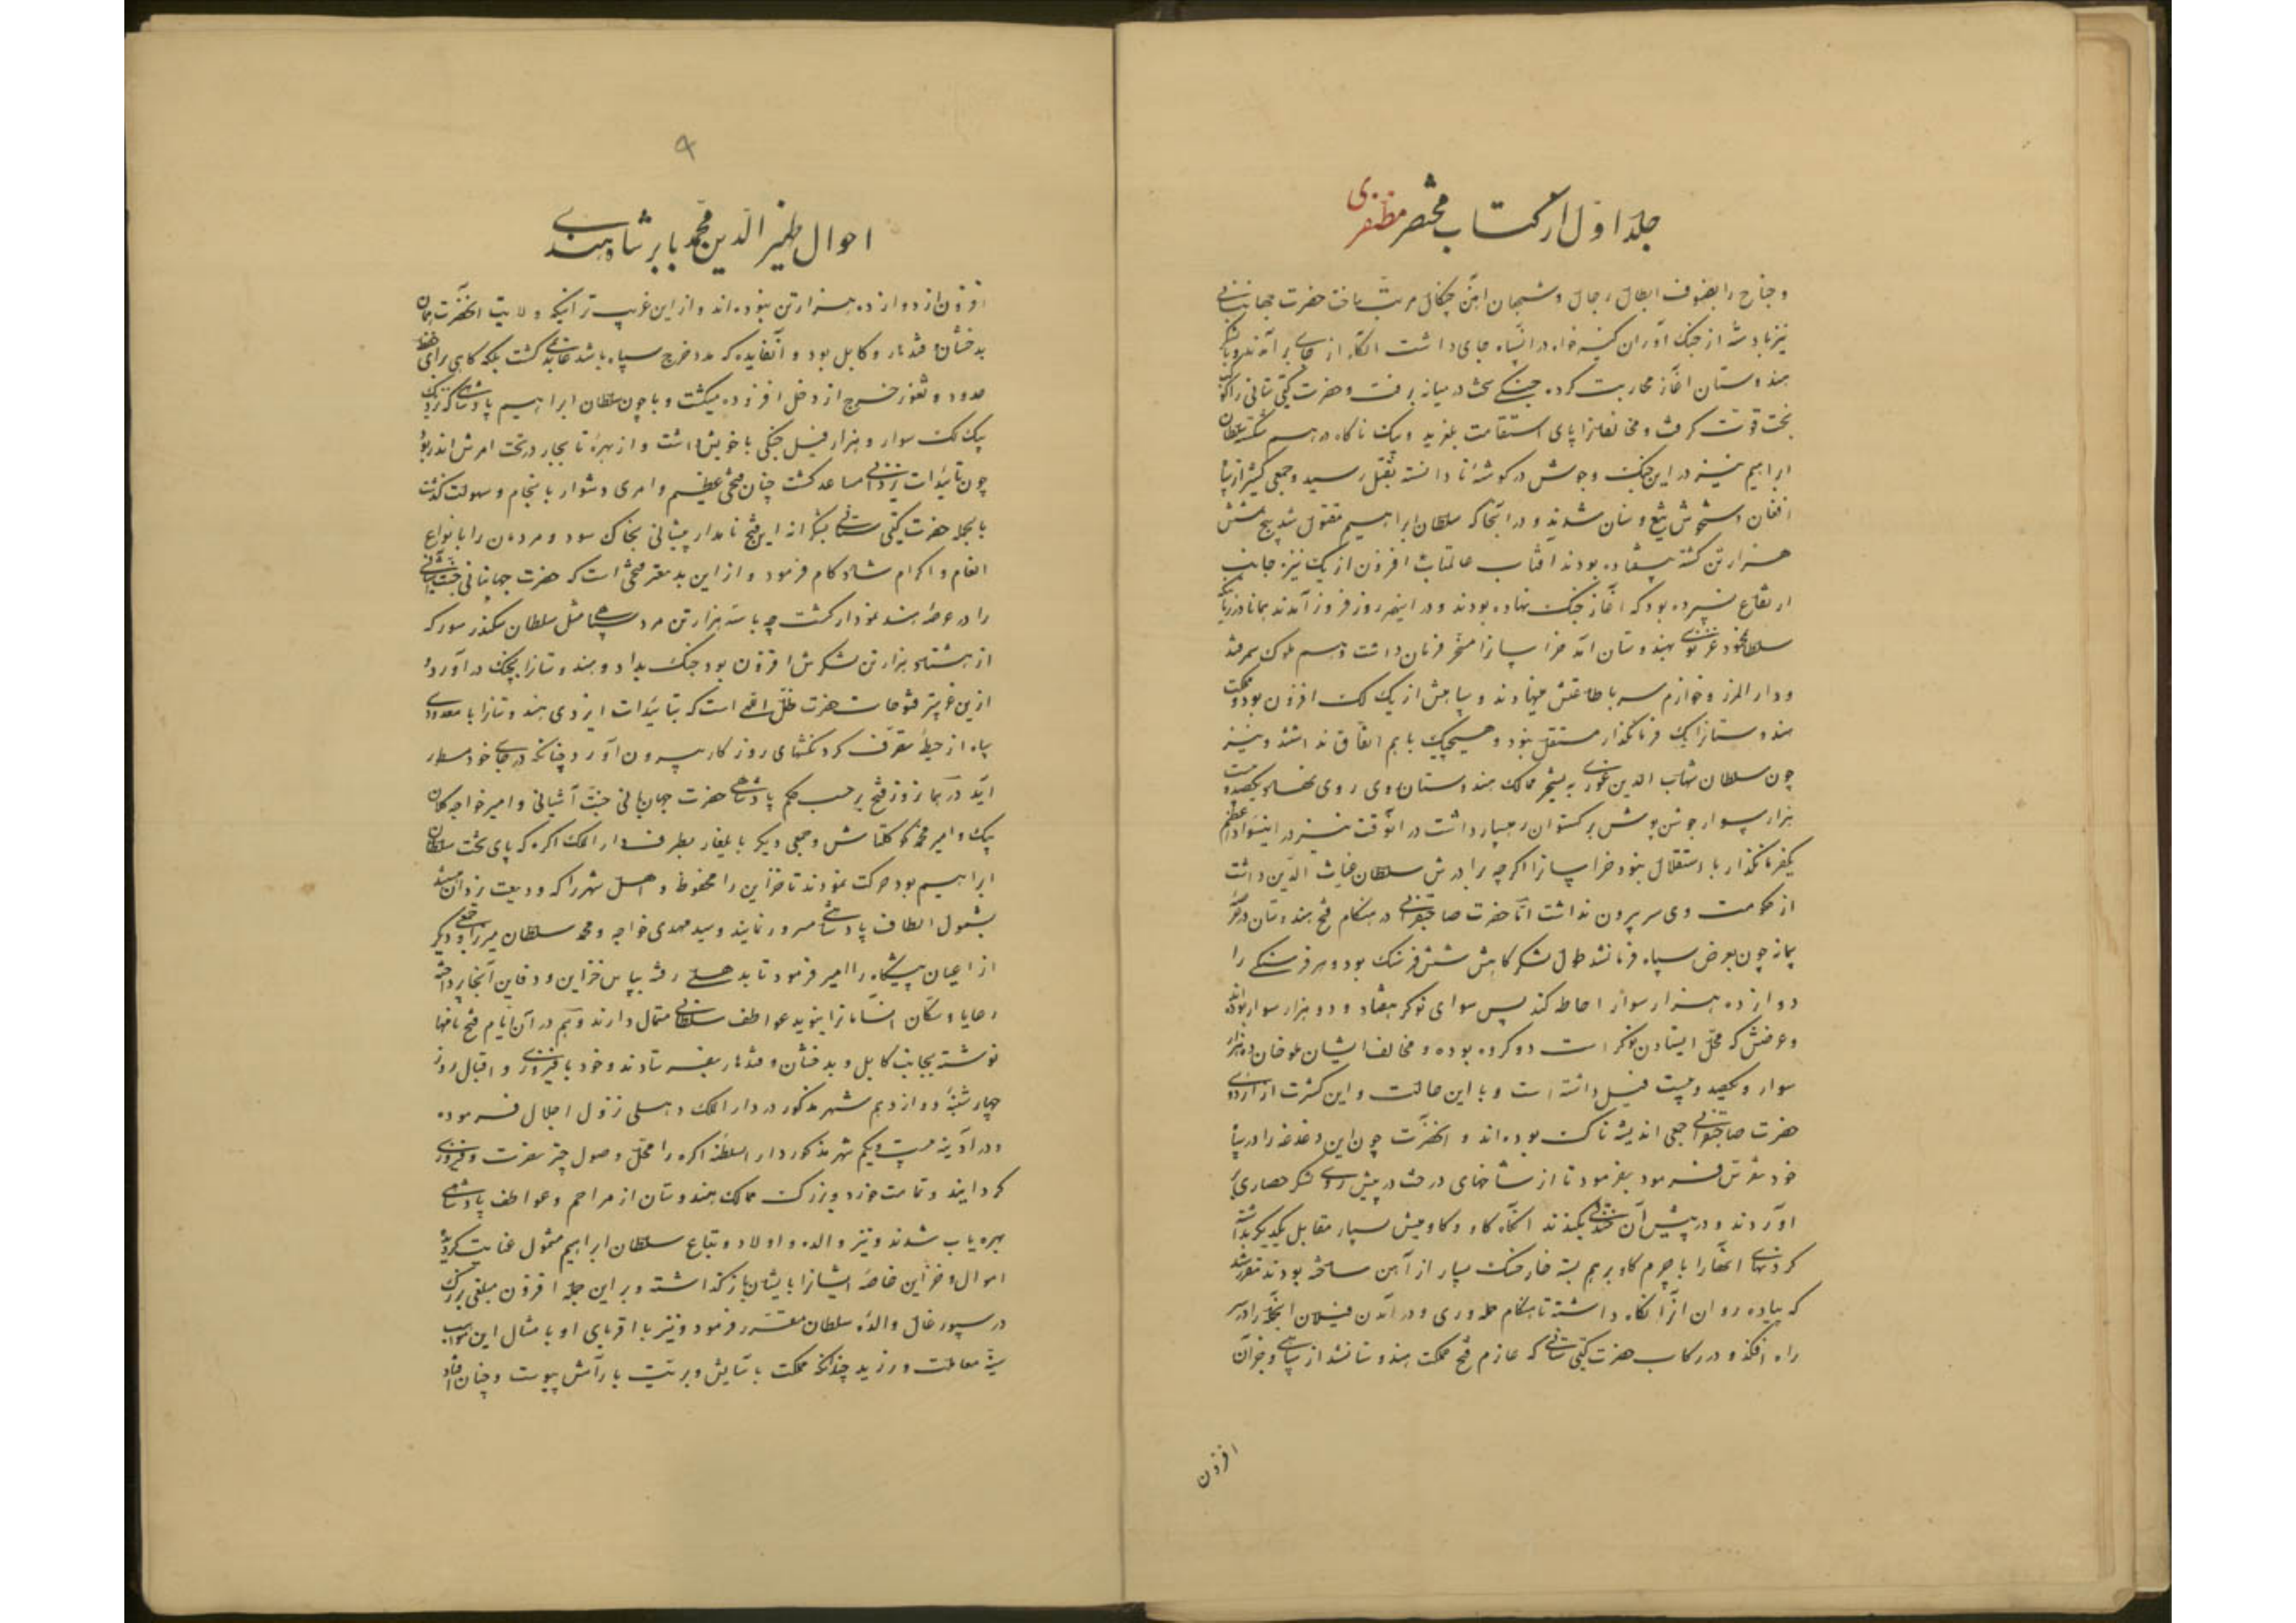 جلد اوّل از کتاب مختصر مظفّری
و جناح را بصفوف ابطال رجال و شجعان آهن چنگال مرتب ساخت حضرت جهانبانی
نیز با دسته از جنک آوران کینه خواه در انسپاه جای داشت آنگاه از جای بر آمدند و با لشکر
هندوستان آغاز محاربت کرده جنگی سخت در میانه برفت و حضرت گیتی ستانی را کوکب
بخت قوّت گرفت و مخالفانرا پای استقامت بلغزید و بیک ناگاه در هم شکسته سلطان
ابراهیم نیز در این جنگ و جوش در گوشهٔ نادانسته بقتل رسید و جمعی کثیر از سپاه
افغان دستخوش تیغ و سنان شدند و در آنجا که سلطان ابراهیم مقتول شد پنج شش
هزار تن کشته بیفتاده بودند آفتاب عالمتاب افزون از یک نیزه جانب
ارتفاع نسپرده بود که آغاز جنگ نهاده بودند و در نیمه روز فروز آمدند همانا در زمانیکه
سلطان محمود غزنوی بهندوستان آمد خراسانرا مسخّر فرمان داشت و هم ملوک سمرقند
و دار المرز و خوارزم سر باطاعتش مینهادند و سپاهش از یک لک افزون بود و مملکت
هندوستانرا یک فرمانگذار مستقل نبود و هیچیک با هم اتفاق نداشتند و نیز
چون سلطان شهاب الدین غوری به تسخیر ممالک هندوستان روی نهاد یکصد و بیست
هزار سوار جوشن پوش برگستوان رهسپار داشت در آنوقت نیز در این سواد اعظم
یکفرمانگذار با استقلال نبود خراسانرا اگر چه برادرش سلطان غیاث الدّین داشت
از حکومت وی سر بیرون نداشت امّا حضرت صاحبقرانی در هنگام فتح هندوستان در
چون بعرض سپاه فرمانشد طول لشکرگاهش شش فرسنگ بود و هر فرسنگی را
دوازده هزار سوار احاطه کند پس سوای نوکر هفتاد و دو هزار سوار بوده‌اند
و عرضش که محلّ ایستادن نوکر است دو کروه بوده و مخالف ایشان ملو خان ده هزار
سوار و یکصد و بیست فیل داشته است و با این حالت و این کثرت از اردوی
حضرت صاحبقرانی جمعی اندیشه ناک بوده‌اند و آنحضرت چون این دغدغه را در سپاه
خود تفرّس فرمود بفرمود تا از شاخهای درخت در پیش روی لشکر حصاری بر
آوردند و در پیش آن خندقی بکندند آنگاه گاو و گاومیش بسیار مقابل یکدیگر بداشته
گردنهای آنها را با چرم گاو بر هم بسته خارخسک بسیار از آهن ساخته بودند مقرر شد
که پیاده روان آنرا نگاه داشته تا هنگام حمله‌وری و در آمدن فیلان آنجمله را در سر
راه افکند و در رکاب حضرت گیتی ستانی که عازم فتح مملکت هندوستانشد از سپاهی و جز آن
افزون
۹
احوال ظهیر الدّین محمّد بابر شاه هندی
افزون از دوازده هزار تن نبوده‌اند و از این غریب تر آنیکه ولایت آنحضرت همان
بدخشان و قندهار و کابل بود و آنفایده که مدد خرج سپاه باشد عاید نمیگشت بلکه گاهی برای حفظ
حدود و ثغور خرج از دخل افزوده میگشت و با چون سلطان ابراهیم پادشاهی که نزدیک
یک لک سوار و هزار فیل جنگی با خویش داشت و از بهره تا بهار در تحت امرش اندر بود
چون تائیدات یزدانی مساعد گشت چنان فتحی عظیم و امری دشوار بانجام و سهولت گذشت
بالجمله حضرت گیتی ستانی بشکرانه این فتح نامدار پیشانی بخاک سود و مردمان را بانواع
انعام و اکرام شاد کام فرمود و از این بدیعتر فتحی است که حضرت جهانبانی جنّت آشیانی
را در عرصهٔ هند نمودار گشت چه با سه هزار تن مرد سپاهی مثل سلطان سکندر سور که
از هشتاد هزار تن لشکرش افزون بود جنگ بداد و هندوستانرا بچنگ در آورد و
ازین غریبتر فتوحات حضرت ظلّ الهی است که بتائیدات ایزدی هندوستانرا با معدودی
سپاه از حیطهٔ تصرّف گردنکشهای روزگار بیرون آورد چنانکه در جای خود مسطور
آید در همانروز فتح بر حسب حکم پادشاهی حضرت جهانبانی جنّت آشیانی و امیر خواجه کلان
بیک و امیر محمّد کوکلتاش و جمعی دیگر بایلغار بطرف دار الملک اکره که پای تخت سلطان
ابراهیم بود حرکت نمودند تا خزاین را محفوظ و اهل شهر را که ودیعت یزدان هستند
بشمول الطاف پادشاهی مسرور نمایند و سید مهدی خواجه و محمد سلطان میرزا و جمعی دیگر
از اعیان پیشگاه را امیر فرمود تا بدهلی رفته بپاس خزاین و دفاین آنجا پرداخته
رعایا و سکّان انسامانرا بنوید عواطف سلطانی متمال دارند و هم در آن ایّام فتح نامها
نوشته بجانب کابل و بدخشان و قندهار بفرستادند و خود با فیروزی و اقبال روز
چهارشنبه دوازدهم شهر مذکور در دار الملک دهلی نزول اجلال فرموده
و در آدینه بیست و یکم شهر مذکور دار السلطنه اکره را محلّ وصول چتر نصرت و فیروزی
گردانیدند و تمامت خورد و بزرگ ممالک هندوستان از مراحم و عواطف پادشاهی
بهره یاب شدند و نیز والده و اولاد و تباع سلطان ابراهیم مشمول عنایت گردید
اموال و خزاین خاصه ایشانرا بایشان بازگذاشته و بر این جمله افزون مبلغی بزرگ
در سیورغال والدهٔ سلطان مقرّر فرمود و نیز با اقربای او بامثال این مواهب
سنیّه معاملت ورزید چندانکه مملکت بآسایش و بریّت بآرامش پیوست و چنان افتاد